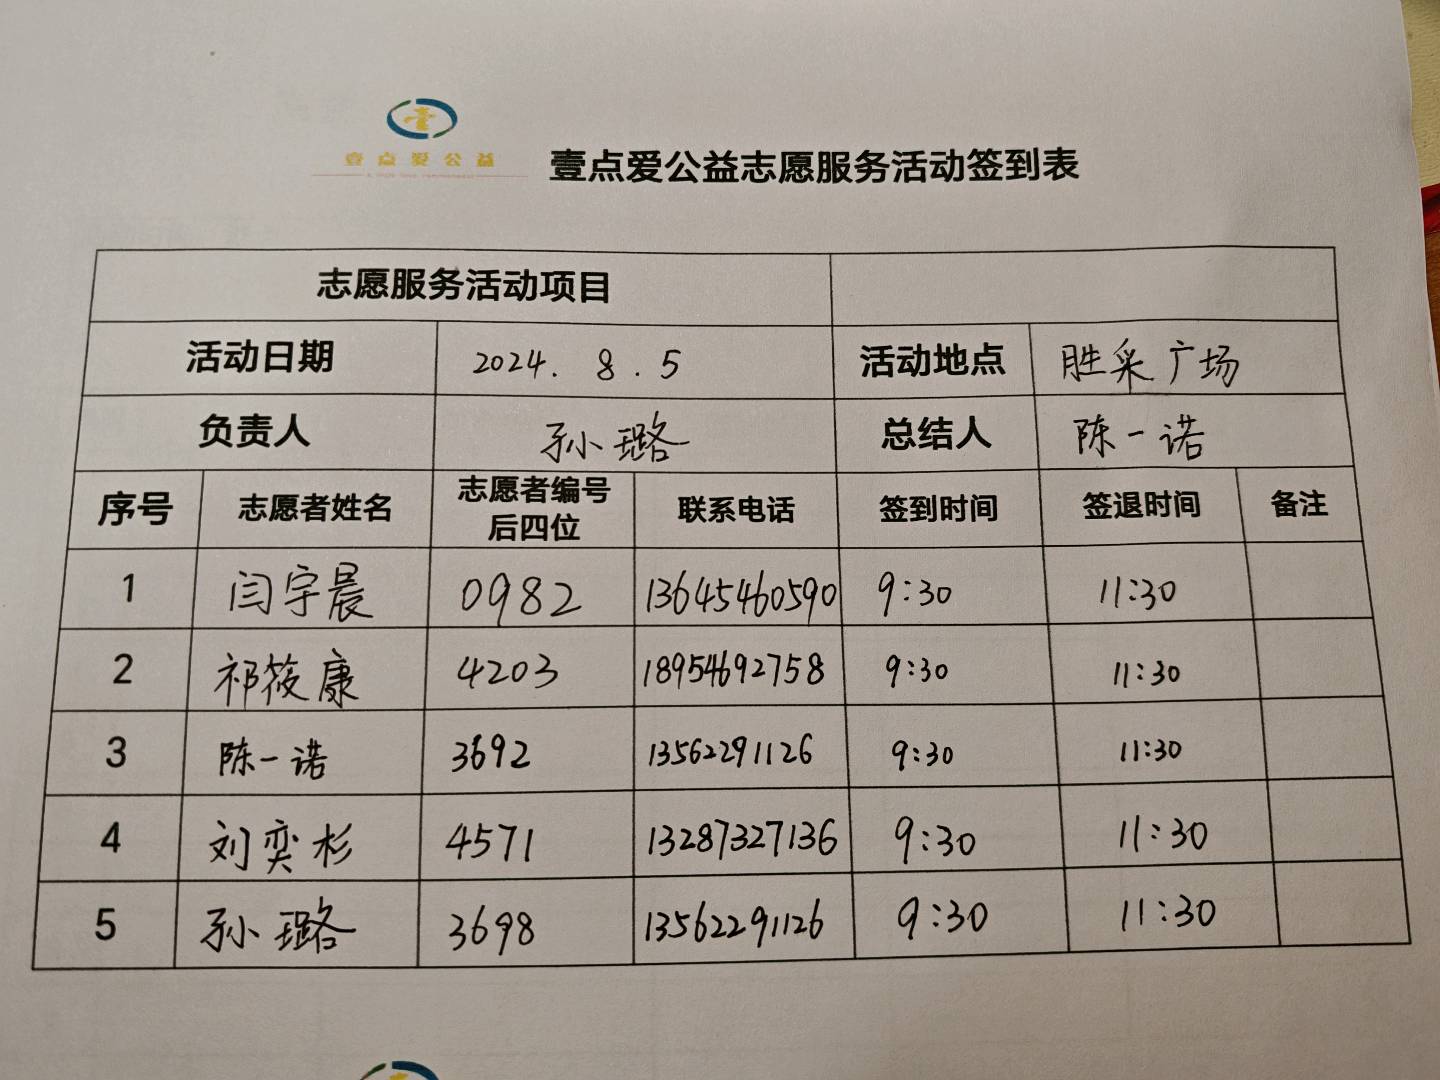 壹点爱公益
壹点爱公益志愿服务活动签到表
志愿服务活动项目
活动日期 2024.8.5 活动地点 胜采广场
负责人 孙璐 总结人 陈一诺
序号 志愿者姓名 志愿者编号后四位 联系电话 签到时间 签退时间 备注
1 闫宇晨 0982 13645460590 9:30 11:30
2 祁筱康 4203 18954692758 9:30 11:30
3 陈一诺 3692 13562291126 9:30 11:30
4 刘奕杉 4571 13287327136 9:30 11:30
5 孙璐 3698 13562291126 9:30 11:30